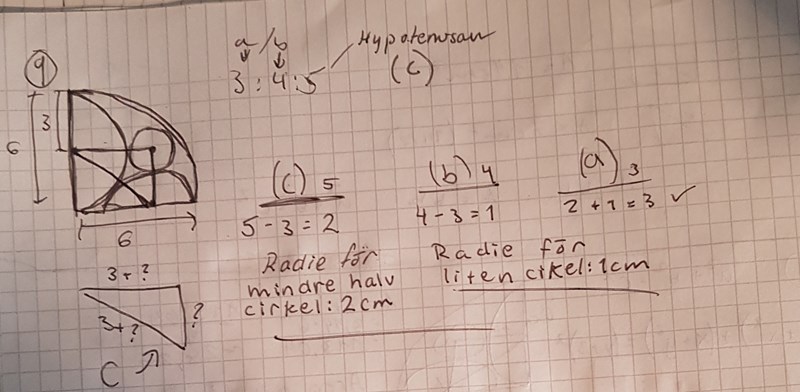 a/b
Hypotenusan
3:4:5
(C)
9
3
6
6
(C) 5
5-3=2
Radie för
mindre halv
cirkel: 2cm
(b) 4
4-3=1
Radie för
liten cikel: 1cm
(a) 3
2+1=3 ✓
3+?
3+?
?
C